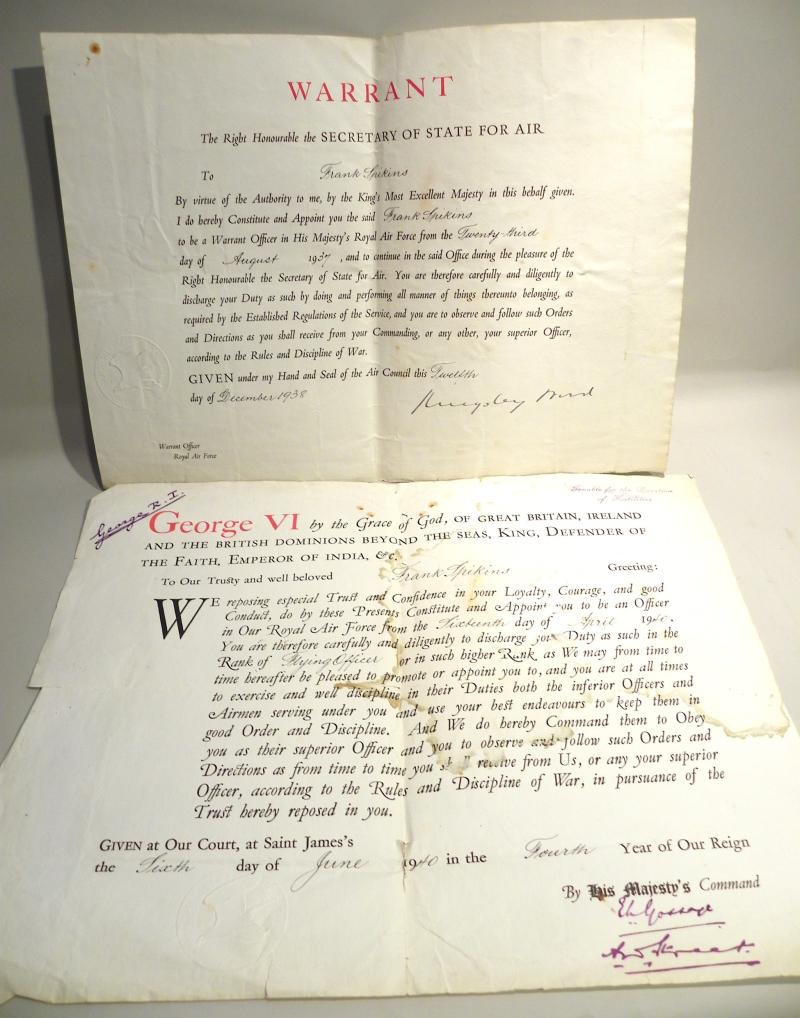 WARRANT
The Right Honourable the SECRETARY OF STATE FOR AIR
To Frank Spikins
By virtue of the Authority to me, by the King's Most Excellent Majesty in this behalf given.
I do hereby Constitute and Appoint you the said Frank Spikins
to be a Warrant Officer in His Majesty's Royal Air Force from the Twenty-third
day of August 1937, and to continue in the said Office during the pleasure of the
Right Honourable the Secretary of State for Air. You are therefore carefully and diligently to
discharge your Duty as such by doing and performing all manner of things thereunto belonging, as
required by the Established Regulations of the Service, and you are to observe and follow such Orders
and Directions as you shall receive from your Commanding, or any other, your superior Officer,
according to the Rules and Discipline of War.
GIVEN under my Hand and Seal of the Air Council this Twelfth
day of December 1938
Kingsley Wood
Warrant Officer
Royal Air Force
Tenable for the Duration
of Hostilities
George R.I.
George VI by the Grace of God, OF GREAT BRITAIN, IRELAND
AND THE BRITISH DOMINIONS BEYOND THE SEAS, KING, DEFENDER OF
THE FAITH, EMPEROR OF INDIA, &c.
To Our Trusty and well beloved Frank Spikins Greeting:
WE reposing especial Trust and Confidence in your Loyalty, Courage, and good
Conduct, do by these Presents Constitute and Appoint you to be an Officer
in Our Royal Air Force from the Sixteenth day of April 1940.
You are therefore carefully and diligently to discharge your Duty as such in the
Rank of Flying Officer or in such higher Rank as We may from time to
time hereafter be pleased to promote or appoint you to, and you are at all times
to exercise and well discipline in their Duties both the inferior Officers and
Airmen serving under you and use your best endeavours to keep them in
good Order and Discipline. And We do hereby Command them to Obey
you as their superior Officer and you to observe and follow such Orders and
Directions as from time to time you sh" receive from Us, or any your superior
Officer, according to the Rules and Discipline of War, in pursuance of the
Trust hereby reposed in you.
GIVEN at Our Court, at Saint James's
the Sixth day of June 1940 in the Fourth Year of Our Reign
By His Majesty's Command
E L Gossage
A W Street.